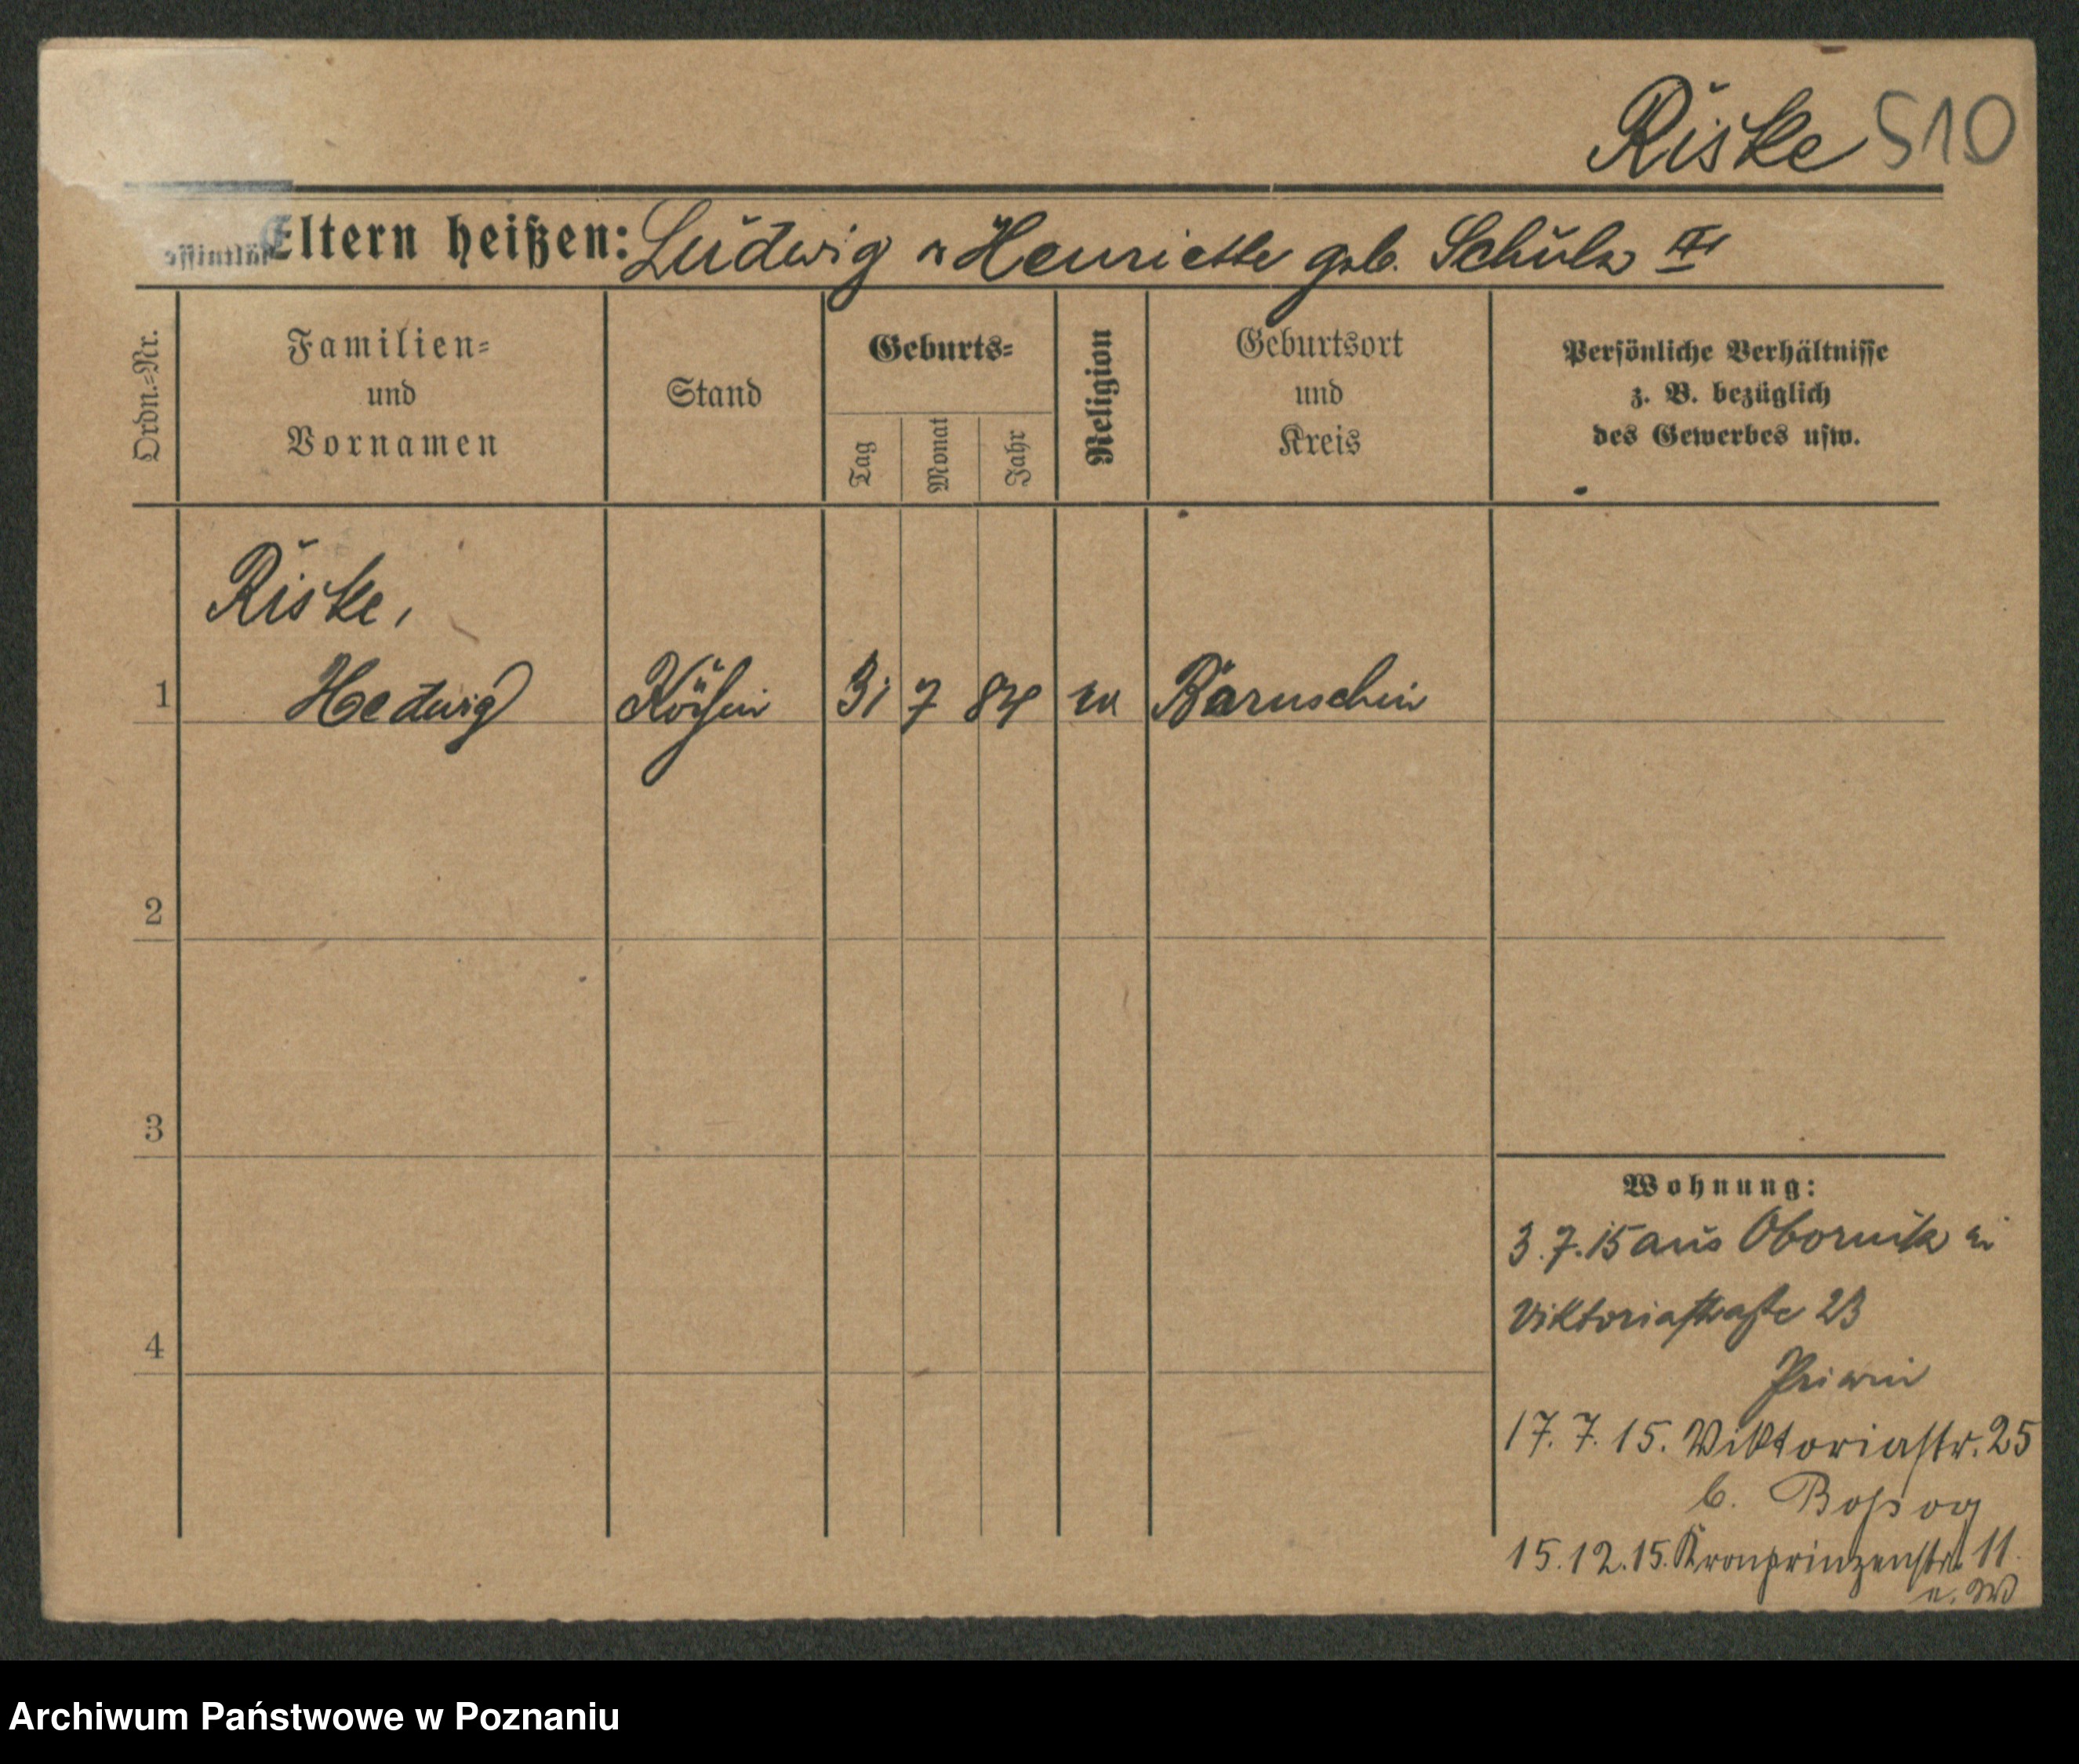 Riske 510
Eltern heißen: Ludwig u Henriette geb. Schulz III
Ordn.=Nr.
Familien=
und
Vornamen
Stand
Geburts=
Tag
Monat
Jahr
Religion
Geburtsort
und
Kreis
Persönliche Verhältnisse
z. B. bezüglich
des Gewerbes usw.
Riske,
1 Hedwig Köchin 31 7 84 Baruschin
2
3
4
Wohnung:
3.7.15 aus Obornik
Viktoriastraße 23
17.7.15. Viktoriastr. 25
b.
15.12.15. Kronprinzenstr. 11.
Archiwum Państwowe w Poznaniu